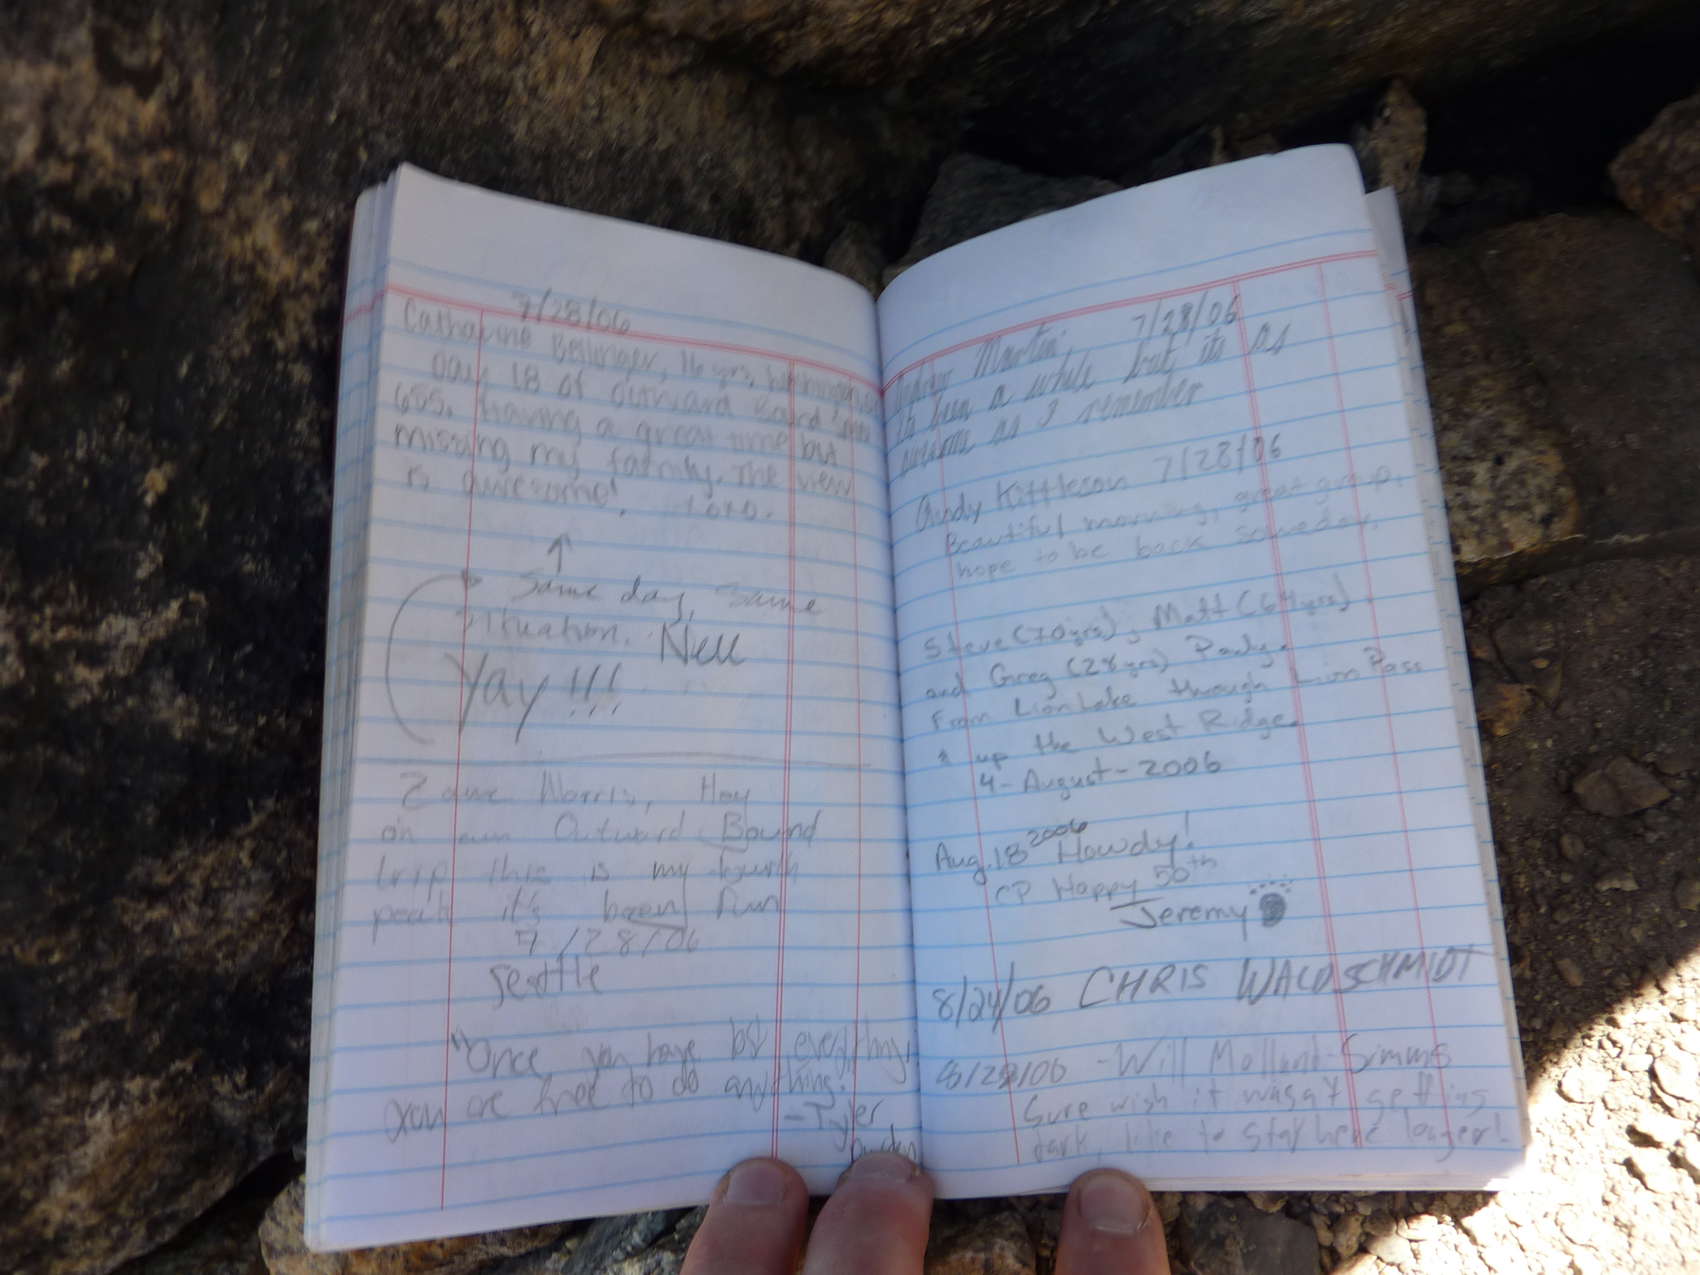 7/28/06
Catharine Bellinger, 16 yrs, Washington, DC
Day 18 of Outward Bound Course
655. Having a great time but
missing my family. The view
is awesome! xoxo.
↑
Same day, same
situation. Nell
Yay!!!
Zane Norris, Hey
on an Outward Bound
trip this is my fourth
peak it's been fun
7/28/06
Seattle
"Once you have lost everything,
you are free to do anything."
-Tyler
Durden
Martin, 7/28/06
It's been a while but its as
awesome as I remember
Andy Kittleson 7/28/06
Beautiful morning, great group,
hope to be back someday.
Steve (70yrs), Matt (64yrs)
and Greg (28yrs) Pady.
From Lion Lake through Lion Pass
& up the West Ridge.
4-August-2006
Aug. 18 2006 Howdy!
CP Happy 50th
Jeremy
8/24/06 CHRIS WALDSCHMIDT
8/28/06 - Will Molland-Simms
Sure wish it wasn't getting
dark, like to stay here longer!